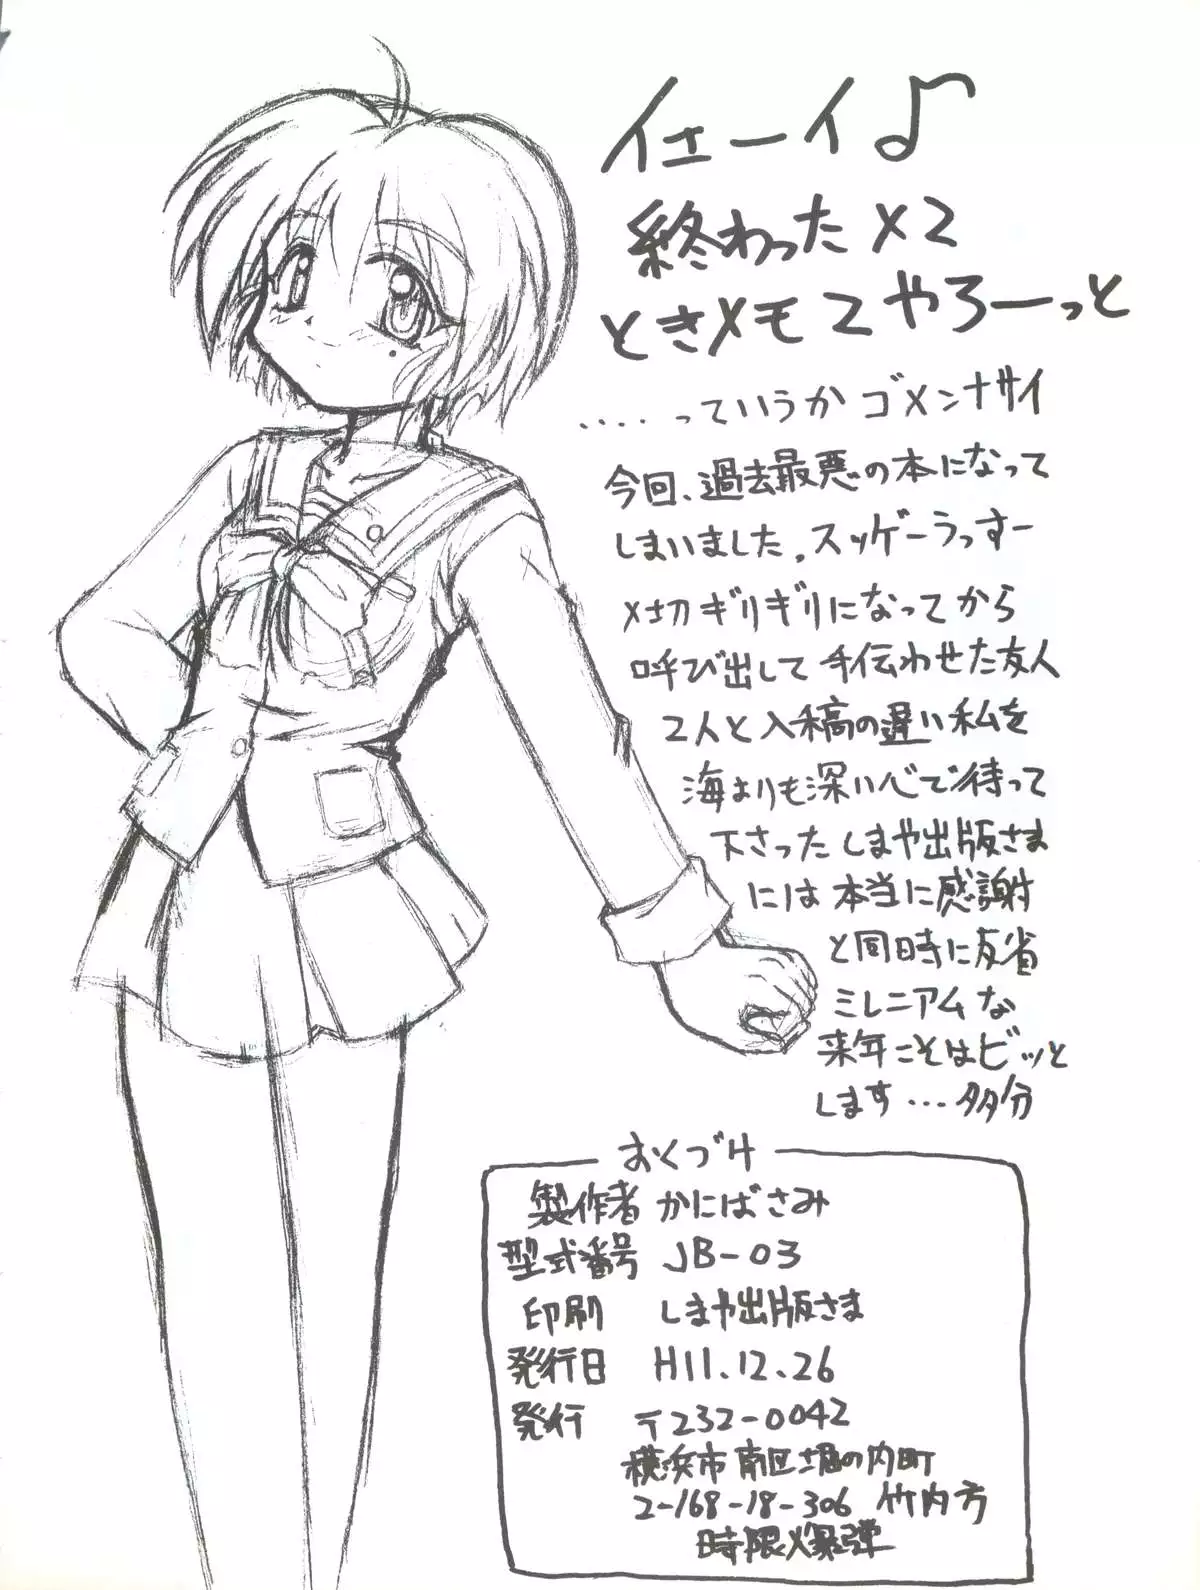 イエーイ♪
終わった×2
ときメモ2やろーっと
....っていうか ゴメンナサイ
今回、過去最悪の本になって
しまいました。スッゲーうっすー
〆切ギリギリになってから
呼び出して手伝わせた友人
2人と入稿の遅い私を
海よりも深い心で待って
下さったしまや出版さま
には本当に感謝
と同時に反省
ミレニアムな
来年こそはビッと
します…多分
おくづけ
製作者 かにばさみ
型式番号 JB-03
印刷 しまや出版さま
発行日 H11.12.26
発行 〒232-0042
横浜市南区堀の内町
2-168-18-306 竹内方
時限爆弾